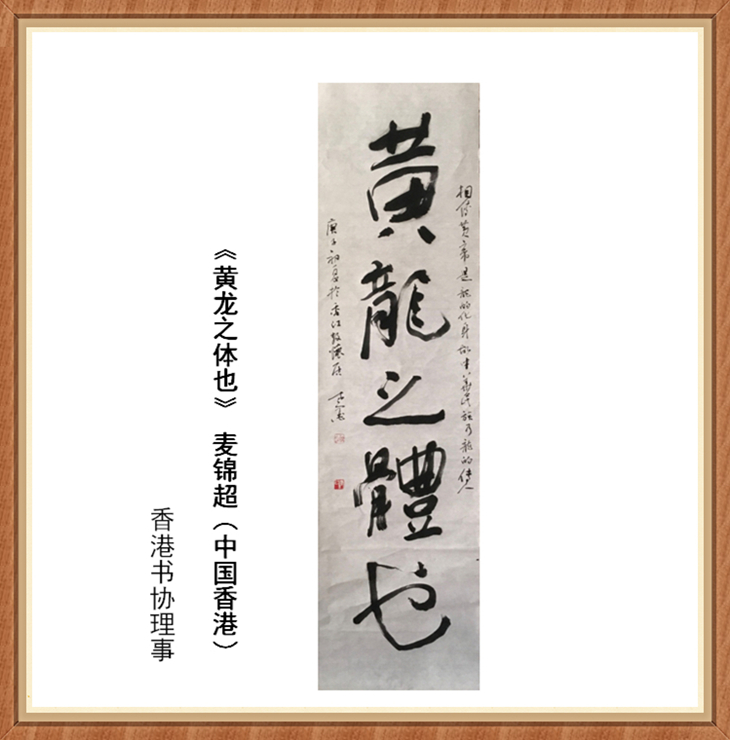 相傳黄帝是龍的化身故中華民族乃龍的傳人
黄龍之體也
庚子初夏於香江
《黄龙之体也》 麦锦超（中国香港）
香港书协理事